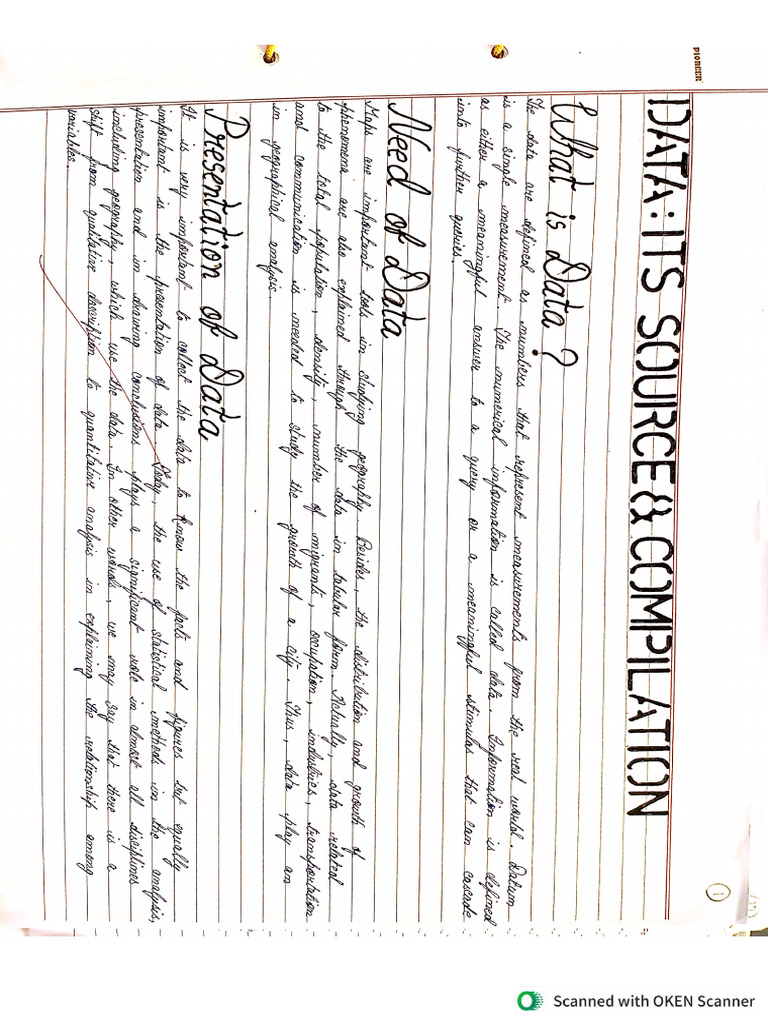 PIONEER
1
DATA: ITS SOURCE & COMPILATION
What is Data?
The data are defined as numbers that represent measurements from the real world. Datum
is a single measurement. The numerical information is called data. Information is defined
as either a meaningful answer to a query or a meaningful stimulas that can cascade
into further queries.
Need of Data
Maps are important tools in studying geography. Besides, the distribution and growth of
phenomena are also explained through the data in tabular form. Actually, data related
to the total population, density, number of migrants, occupation, industries, transportation
and communication is needed to study the growth of a city. Thus, data play an
in geographical analysis.
Presentation of Data
It is very important to collect the data to know the facts and figures but equally
important is the presentation of data. Today, the use of statistical methods in the analysis,
presentation and in drawing conclusions plays a significant role in almost all disciplines
including geography, which use the data. In other words, we may say that there is a
shift from qualitative description to quantitative analysis in explaining the relationship among
variables.
Scanned with OKEN Scanner